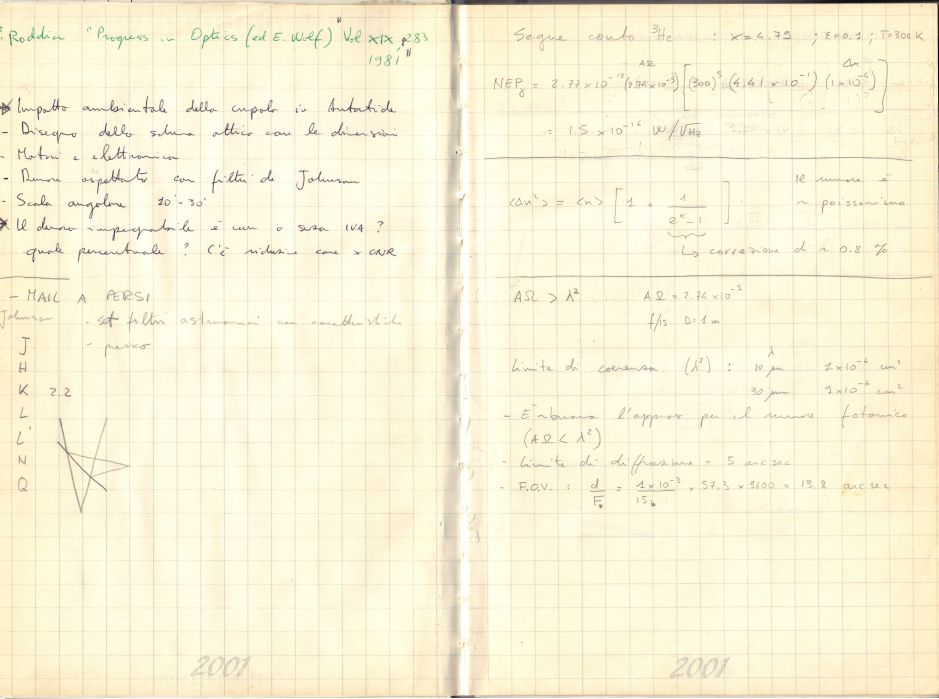 F. Roddier "Progress in Optics (ed E. Wolf)" Vol XIX, p283
1981"
Impatto ambientale della cupola in Antartide
- Disegno dello schema ottico con le dimensioni
- Motori e elettronica
- Rumore aspettato con filtri di Johnson
- Scala angolare 20'-30'
Il denaro impegnabile è con o senza IVA?
quale percentuale? C'è riduzione come x CNR
- MAIL A PERSI
Johnson - set filtri astronomici con caratteristiche
J - 
H
K 2.2
L
L'
N
Q
2001
Segue conto ³He : x = 4.79 ; ε=0.1 ; T=300K
AΩ Δx
NEPγ = 2.77×10⁻¹⁸ (2.74×10⁻⁵) [(300)⁵ (4.41×10⁻¹) (1×10⁻⁴)]
= 1.5×10⁻¹⁵ W/√Hz
⟨Δn²⟩ = ⟨n⟩ [1 + 1/(eˣ-1)] il rumore è
~ poissoniano
↳ correzione di ~ 0.8 %
AΩ > λ² AΩ = 2.74×10⁻⁵
f/15 D=1m
λ
Limite di coerenza (λ²) : 10 μm 1×10⁻⁶ cm²
30 μm 9×10⁻⁶ cm²
- E' buona l'approx per il rumore fotonico
(AΩ < λ²)
- Limite di diffrazione = 5 arcsec
- F.O.V. : d/F = 1×10⁻³/15 × 57.3 × 3600 = 13.8 arcsec
2001